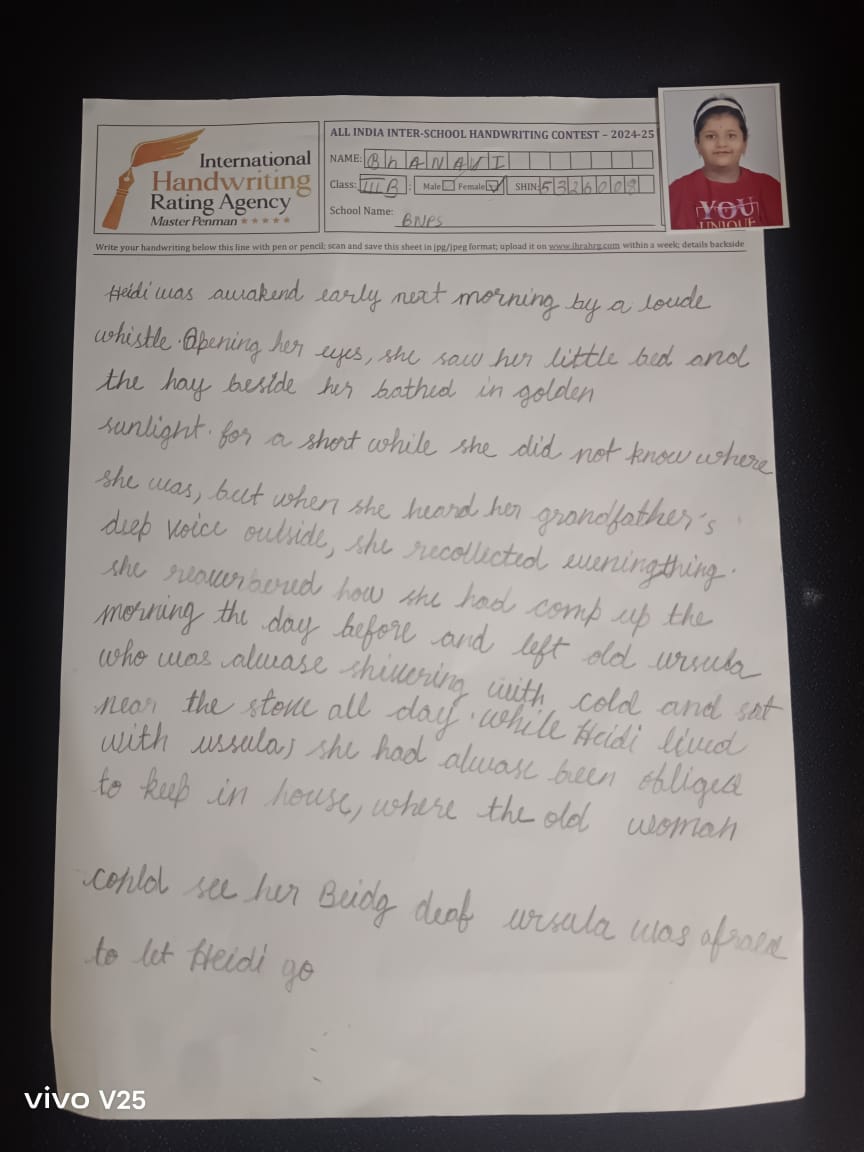 International
Handwriting
Rating Agency
Master Penman ★★★★★
ALL INDIA INTER-SCHOOL HANDWRITING CONTEST – 2024-25
NAME: BhANAVI
Class: III B Male Female ✓ SHIN: 5326008
School Name: BNPS
YOU
UNIQUE
Write your handwriting below this line with pen or pencil; scan and save this sheet in jpg/jpeg format; upload it on www.ihrahrg.com within a week; details backside
Heidi was awakend early next morning by a loude
whistle. Opening her eyes, she saw her little bed and
the hay beside her bathed in golden
sunlight. for a short while she did not know where
she was, but when she heard her grandfather's
deep voice outside, she recollected eveningthing.
she how she had comp up the
morning the day before and left old ursula
who was alwase shivering with cold and sat
near the stove all day. while Heidi lived
with ussula, she had alwase been obliged
to keep in house, where the old woman
conld see her Beidg deaf ursula was afraid
to let Heidi go
vivo V25